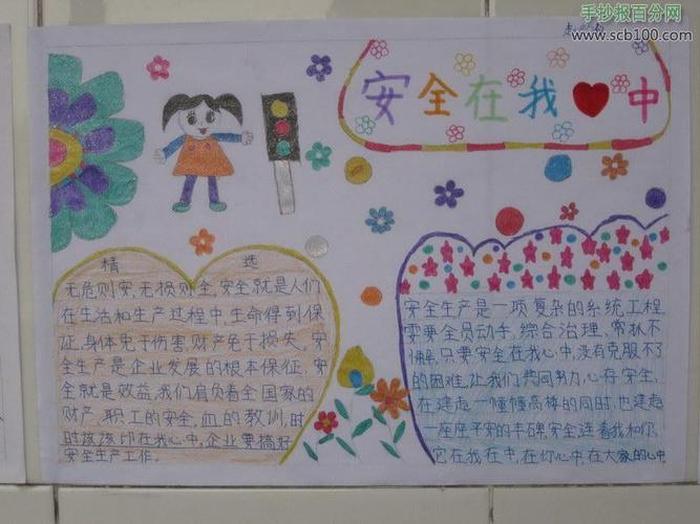 手抄报百分网
www.scb100.com
安全在我中
精选
无危则安,无损则全,安全就是人们
在生活和生产过程中,生命得到保
证,身体免于伤害,财产免于损失,安
全生产是企业发展的根本保征,安
全就是效益,我们肩负着全国家的
财产,职工的安全,血的教训,时
时该该印在我心中,企业要搞好
安全生产工作.
安全生产是一项复杂的系统工程
要全员动手,综合治理,常抓不
懈.只要安全在我心中,没有克服不了
的困难,让我们共同努力,心存安全,
在建起一幢幢高楼的同时,也建起
一座座平安的丰碑,安全连着我和你,
它在我在中,在你心中,在大家的心中